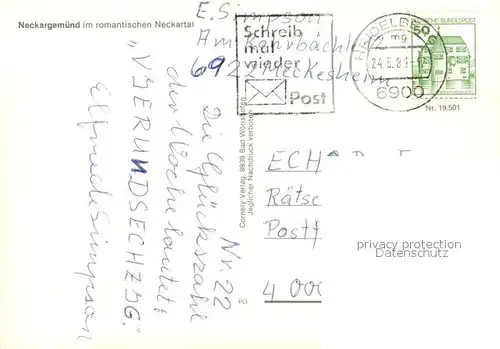 Neckargemünd im romantischen Neckartal
E. Simpson
Am Lohrbächle 12
6922 Meckesheim
Schreib
mal
wieder
Post
HEIDELBERG
mg
24.5.8
6900
DEUTSCHE BUNDESPOST
50
Nr. 19.501
Nr. 22
Die Glückszahl
der Woche lautet:
"VIERUNDSECHZIG."
Elfriede Simpson
Cornely Verlag, 8939 Bad Wörishofen
Jeglicher Nachdruck verboten
ECH
Rätse
Postf
4 000
privacy protection
Datenschutz